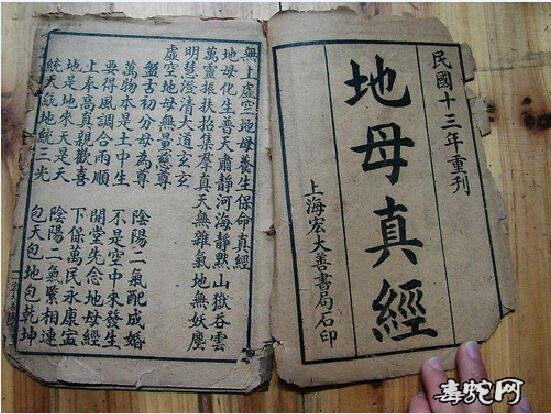 民國十三年重刊
地母真經
上海宏大善書局石印
無上虛空地母養生保命真經
地母化生普天肅靜河海靜默山嶽吞雲
萬靈振扶招集羣真天無雜氣地無妖塵
明慧澄清大道玄玄
虛空地母無量慈尊
盤古初分母為尊 陰陽二氣配成婚
萬物本是土中生 不是空中來發生
要得風調合雨順 開堂先念地母經
上奉高真親歡喜 下保萬民永康寧
地是地來天是天 陰陽二氣緊相連
統天統地統三光 包天包地包乾坤
毒蛇网